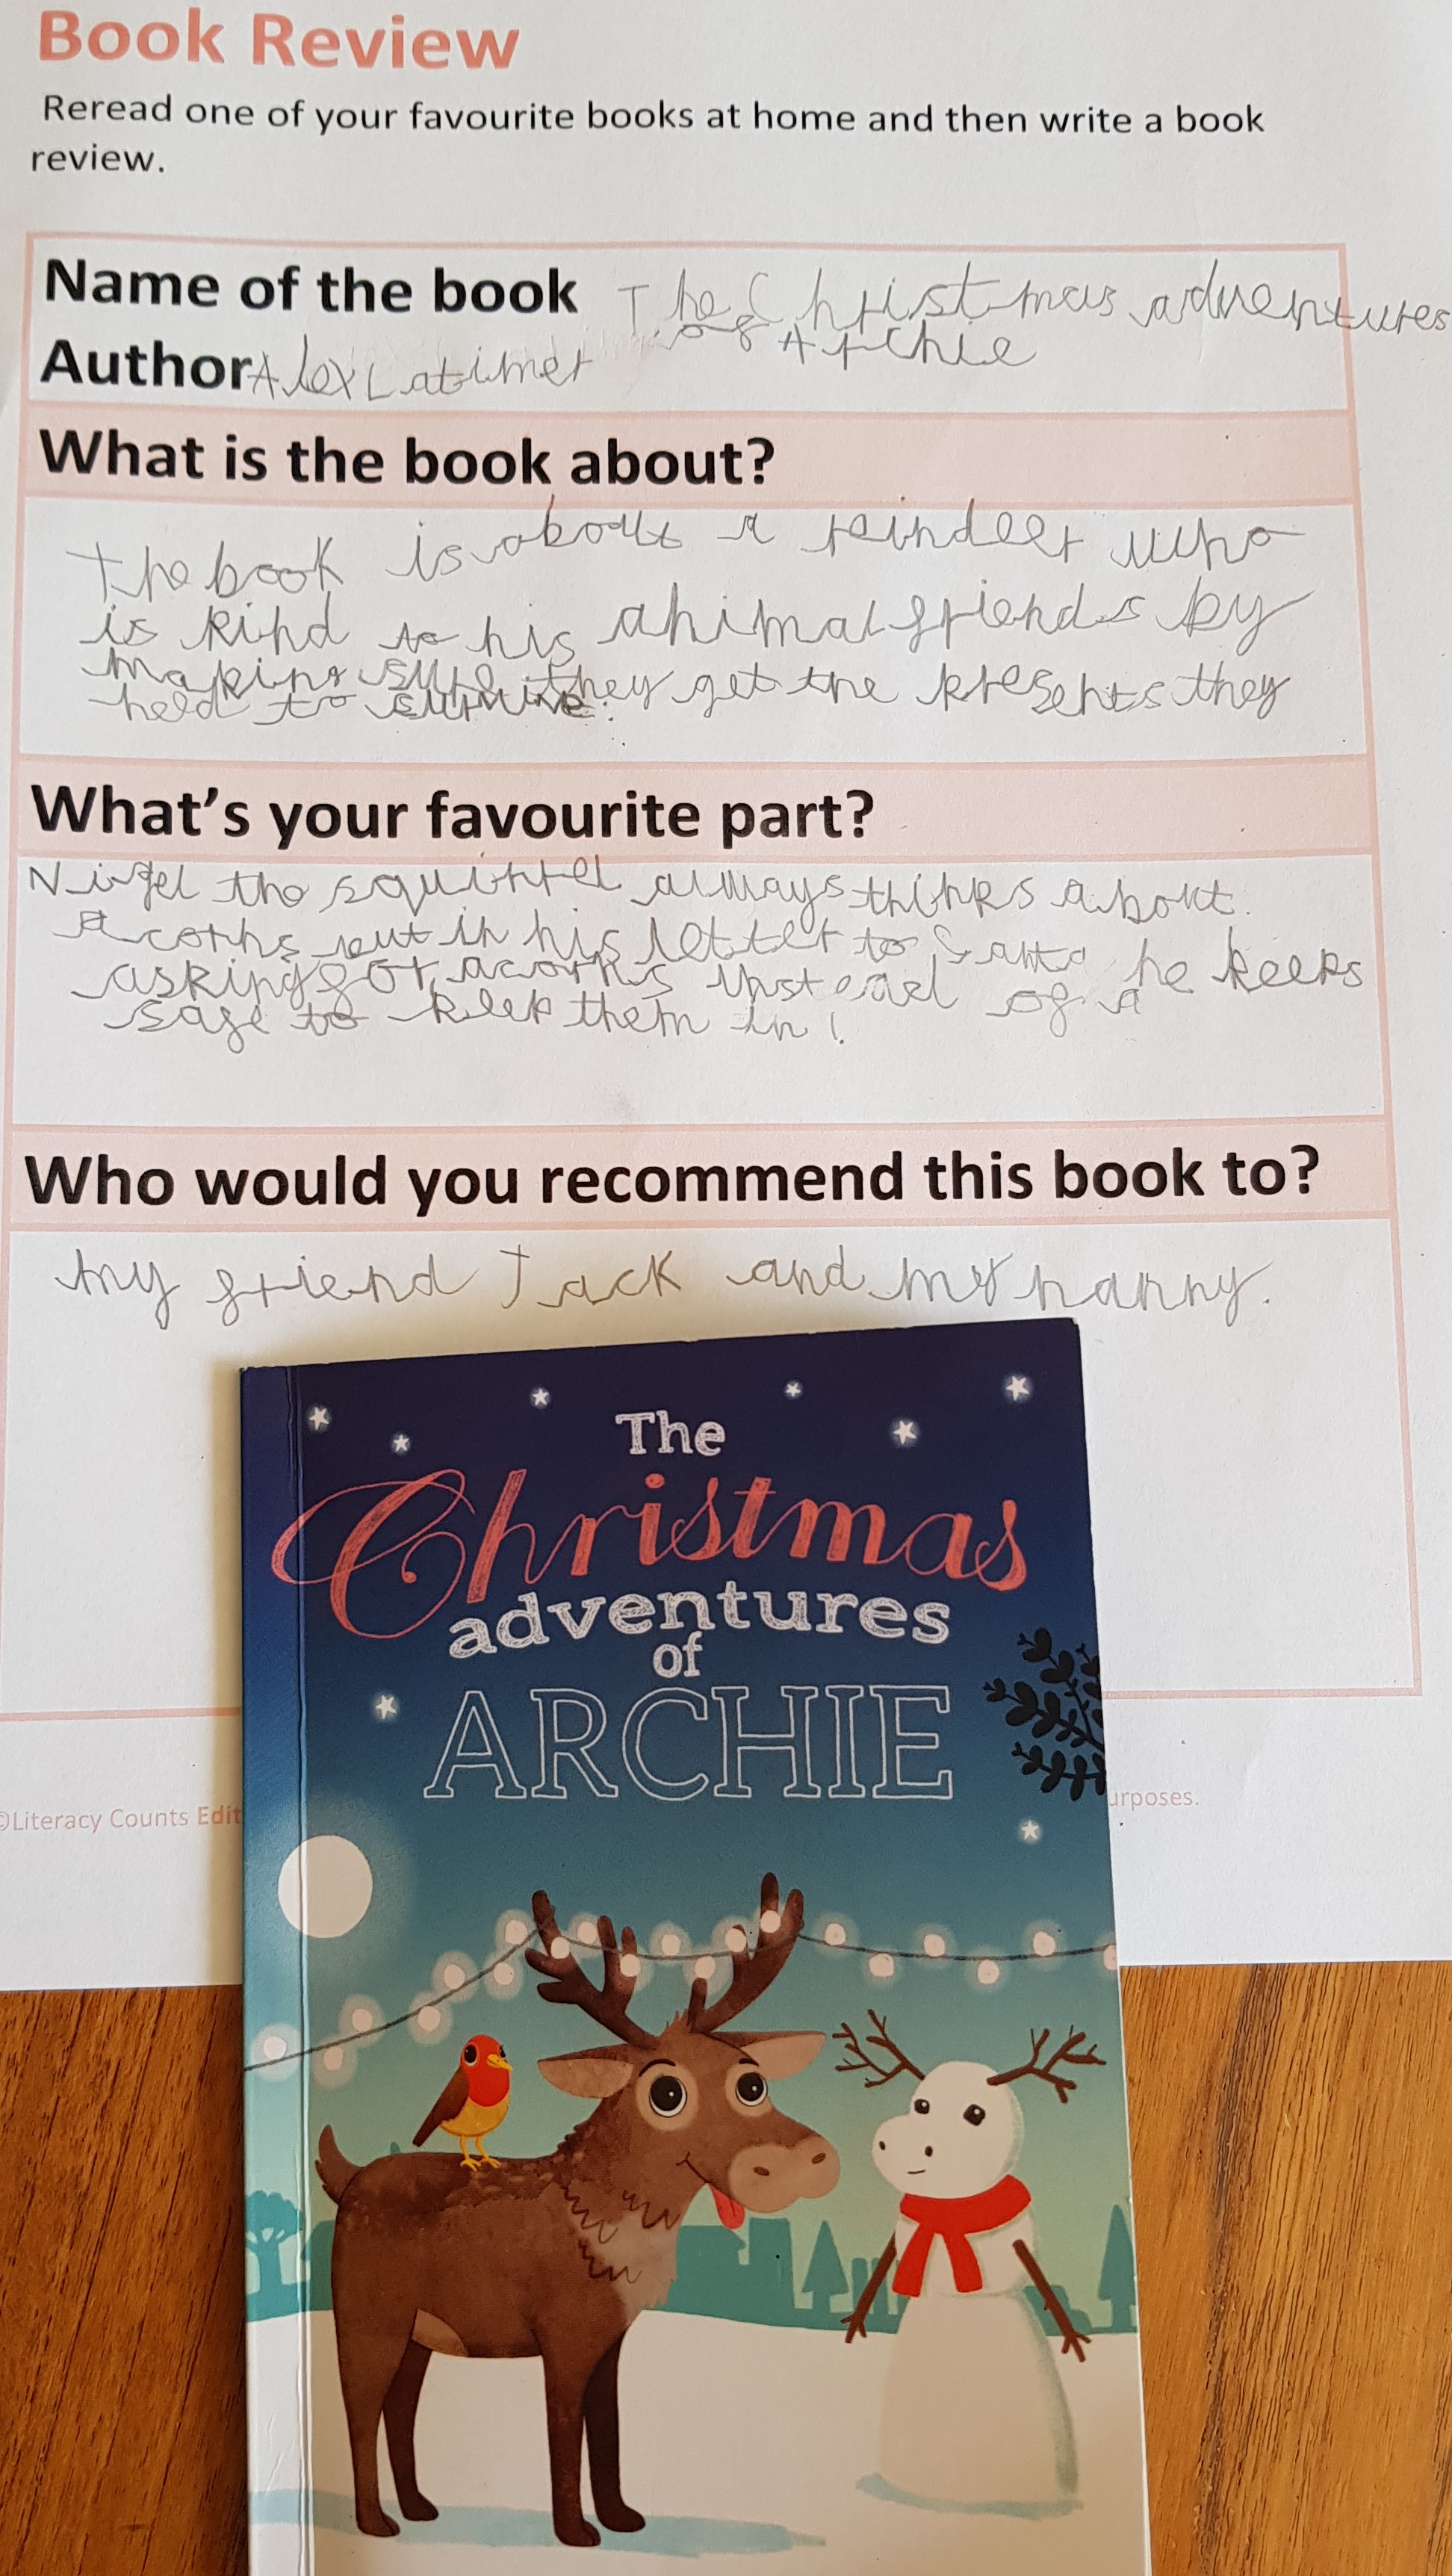 Book Review
Reread one of your favourite books at home and then write a book
review.
Name of the book The Christmas adventures
of Archie
Author Alex Latimer
What is the book about?
The book is about a reindeer who
is kind to his animal friends by
making sure they get the presents they
need to survive.
What's your favourite part?
Nigel the squirrel always thinks about
acorns but in his letter to Santa he keeps
asking for acorns instead of a
safe to keep them in!
Who would you recommend this book to?
my friend Jack and my nanny.
The
Christmas
adventures
of
ARCHIE
©Literacy Counts